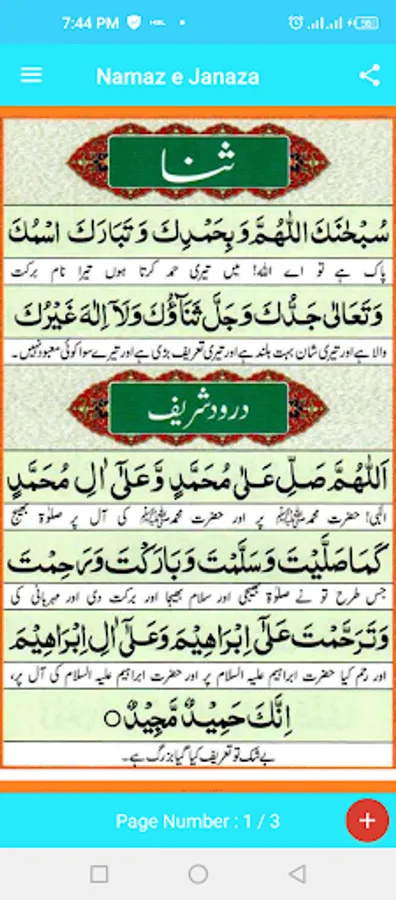 7:44 PM HBL
Namaz e Janaza
ثنا
سُبْحٰنَكَ اللّٰهُمَّ وَبِحَمْدِكَ وَتَبَارَكَ اسْمُكَ
پاک ہے تو اے اللہ! میں تیری حمد کرتا ہوں تیرا نام برکت
وَتَعَالٰى جَدُّكَ وَجَلَّ ثَنَآؤُكَ وَلَآ اِلٰهَ غَيْرُكَ
والا ہے اور تیری شان بہت بلند ہے اور تیری تعریف بڑی ہے اور تیرے سوا کوئی معبود نہیں۔
درود شریف
اَللّٰهُمَّ صَلِّ عَلٰى مُحَمَّدٍ وَّعَلٰٓى اٰلِ مُحَمَّدٍ
الٰہی! حضرت محمد ﷺ پر اور حضرت محمد ﷺ کی آل پر صلوٰۃ بھیج
كَمَا صَلَّيْتَ وَسَلَّمْتَ وَبَارَكْتَ وَرَحِمْتَ
جس طرح تو نے صلوٰۃ بھیجی اور سلام بھیجا اور برکت دی اور مہربانی کی
وَتَرَحَّمْتَ عَلٰٓى اِبْرَاهِيْمَ وَعَلٰٓى اٰلِ اِبْرَاهِيْمَ
اور رحم کیا حضرت ابراہیم علیہ السلام پر اور حضرت ابراہیم علیہ السلام کی آل پر،
اِنَّكَ حَمِيْدٌ مَّجِيْدٌ○
بے شک تو تعریف کیا گیا بزرگ ہے۔
Page Number : 1 / 3
+